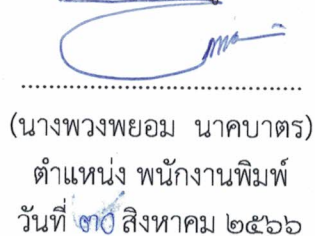 (นางพวงพยอม นาคบาตร)
ตำแหน่ง พนักงานพิมพ์
วันที่ ๓๐ สิงหาคม ๒๕๖๖